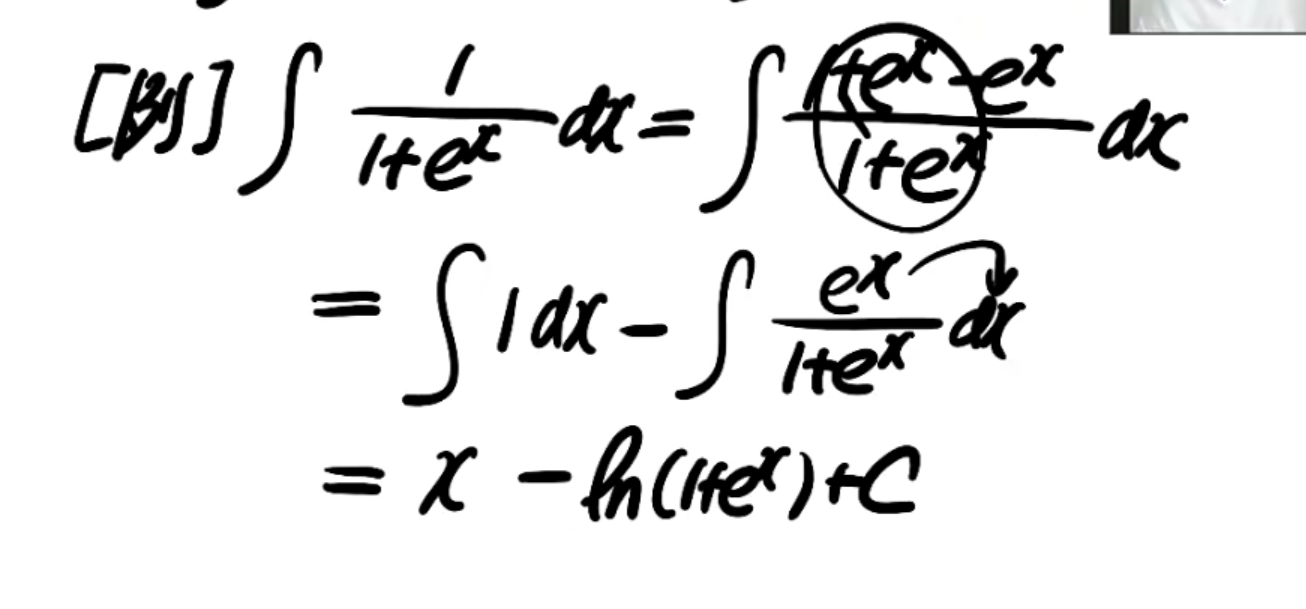 [例] ∫ 1/(1+eˣ) dx = ∫ (1+eˣ-eˣ)/(1+eˣ) dx
= ∫ 1 dx - ∫ eˣ/(1+eˣ) dx
= x - ln(1+eˣ)+C